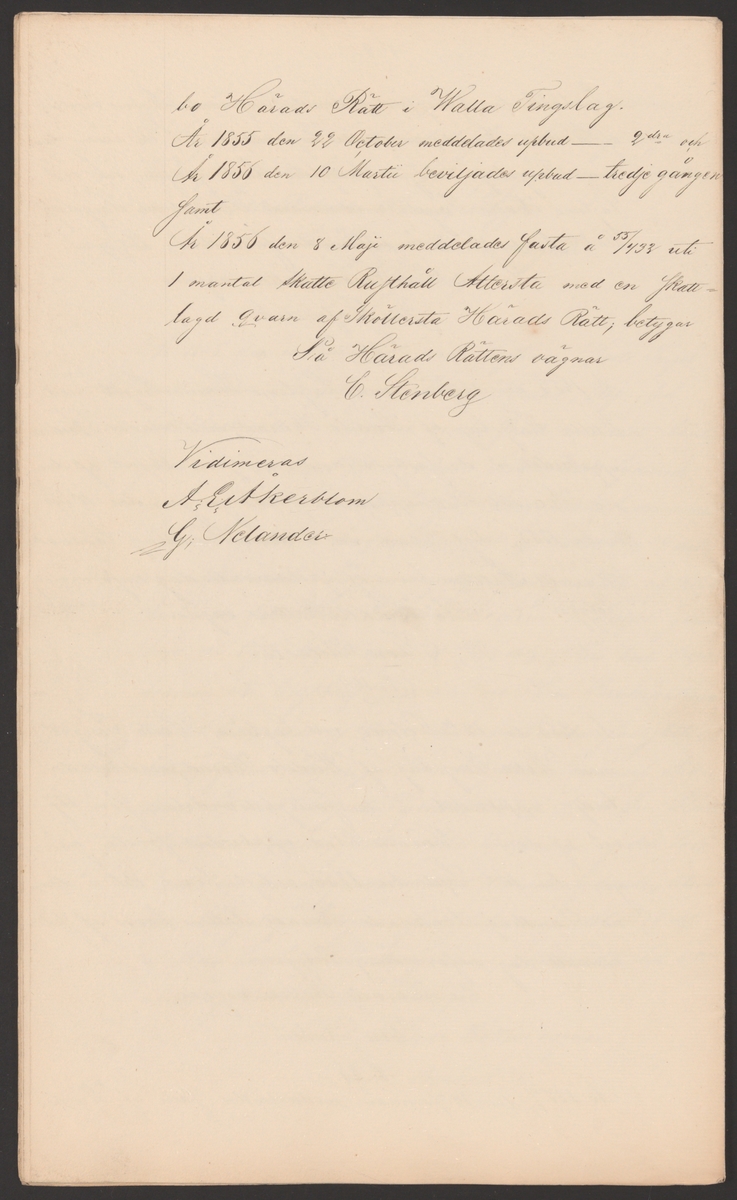 bo Härads Rätt i Walla Tingslag.
År 1855 den 22 October meddelades upbud — 2dra och
År 1856 den 10 Martii beviljades upbud — tredje gången
samt
År 1856 den 8 Maji meddelades fasta å 55/433 uti
1 mantal Skatte Rusthåll Attersta med en skatt-
lagd qvarn af Sköllersta Härads Rätt; betygar
På Härads Rättens vägnar
C. Stenberg
Vidimeras
A. E. Åkerblom
G. Nelander